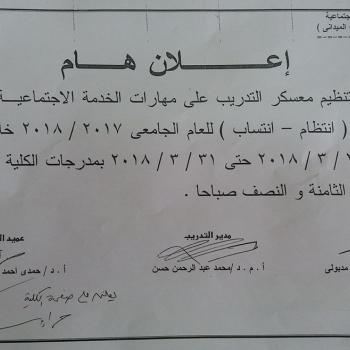 جتماعية
الميدانى )
إعـــلان هـــام
تنظيم معسكر التدريب على مهارات الخدمة الاجتماعية
( انتظام – انتساب ) للعام الجامعى ٢٠١٧ / ٢٠١٨ خلا
/ ٣ / ٢٠١٨ حتى ٣١ / ٣ / ٢٠١٨ بمدرجات الكلية
الثامنة و النصف صباحا .
مدير التدريب
عميد ال
مدبولى
أ . م . د /محمد عبد الرحمن حسن
أ . د / حمدى احمد
يعلن على صفحة الكلية